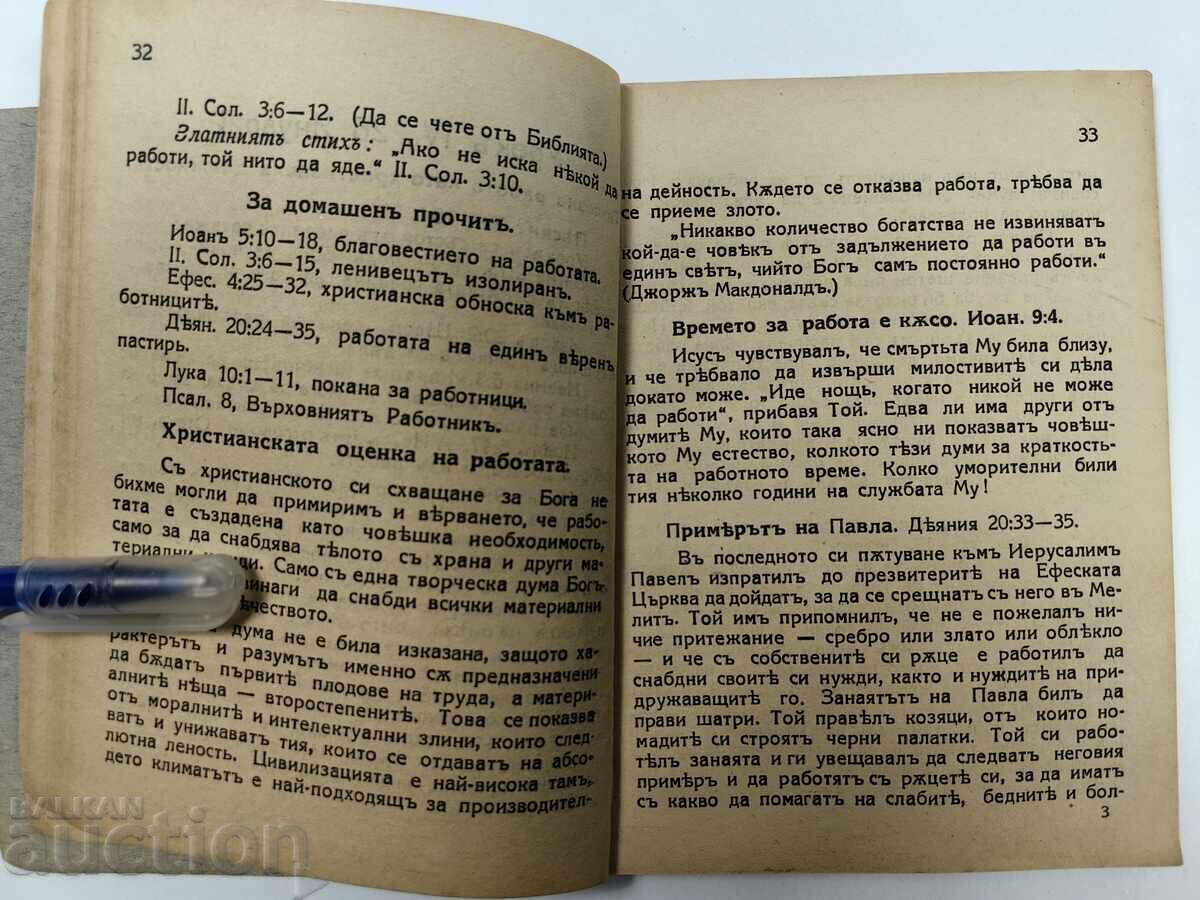 32
II. Сол. 3:6—12. (Да се чете отъ Библията.)
Златниятъ стихъ: „Ако не иска нѣкой да
работи, той нито да яде.“ II. Сол. 3:10.
За домашенъ прочитъ.
Иоанъ 5:10—18, благовестието на работата.
II. Сол. 3:6—15, ленивецътъ изолиранъ.
Ефес. 4:25—32, християнска обноска къмъ ра-
ботницитѣ.
Дѣян. 20:24—35, работата на единъ вѣренъ
пастирь.
Лука 10:1—11, покана за работници.
Псал. 8, Върховниятъ Работникъ.
Християнската оценка на работата.
Съ християнското си схващане за Бога не
бихме могли да примиримъ и вѣрването, че рабо-
тата е създадена като човѣшка необходимость,
само за да снабдява тѣлото съ храна и други ма-
териални Само съ една творческа дума Богъ
да снабди всички материални
дума не е била изказана, защото ха-
рактерътъ и разумътъ именно сѫ предназначени
да бѫдатъ първитѣ плодове на труда, а матери-
алнитѣ нѣща — второстепенитѣ. Това се показва
отъ моралнитѣ и интелектуални злини, които след-
ватъ и унижаватъ тия, които се отдаватъ на абсо-
лютна леность. Цивилизацията е най-висока тамъ,
дето климатътъ е най-подходящъ за производител-
33
на дейность. Кѫдето се отказва работа, трѣбва да
се приеме злото.
„Никакво количество богатства не извиняватъ
кой-да-е човѣкъ отъ задължението да работи въ
единъ свѣтъ, чийто Богъ самъ постоянно работи.“
(Джоржъ Макдоналдъ.)
Времето за работа е кѫсо. Иоан. 9:4.
Исусъ чувствувалъ, че смъртьта Му била близу,
и че трѣбвало да извърши милостивитѣ си дѣла
докато може. „Иде нощь, когато никой не може
да работи“, прибавя Той. Едва ли има други отъ
думитѣ Му, които така ясно ни показватъ човѣш-
кото Му естество, колкото тѣзи думи за краткость-
та на работното време. Колко уморителни били
тия нѣколко години на службата Му!
Примѣрътъ на Павла. Дѣяния 20:33—35.
Въ последното си пѫтуване къмъ Иерусалимъ
Павелъ изпратилъ до презвитеритѣ на Ефеската
Църква да дойдатъ, за да се срещнатъ съ него въ Ме-
литъ. Той имъ припомнилъ, че не е пожелалъ ни-
чие притежание — сребро или злато или облѣкло
— и че съ собственитѣ си рѫце е работилъ да
снабдни своитѣ си нужди, както и нуждитѣ на при-
дружаващитѣ го. Занаятътъ на Павла билъ да
прави шатри. Той правѣлъ козяци, отъ които но-
мадитѣ си строятъ черни палатки. Той си рабо-
тѣлъ занаята и ги увещавалъ да следватъ неговия
примѣръ и да работятъ съ рѫцетѣ си, за да иматъ
съ какво да помагатъ на слабитѣ, беднитѣ и бол-
3
BALKAN
auction